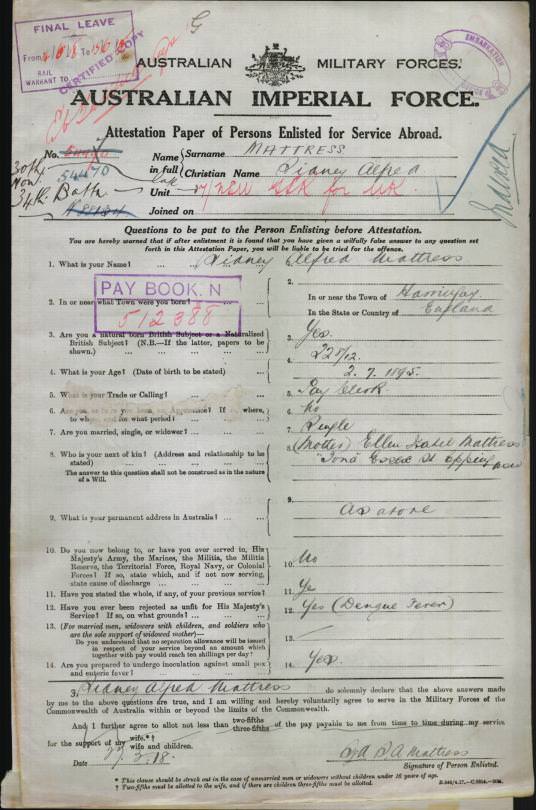 G
FINAL LEAVE
From To
RAIL
WARRANT TO
CERTIFIED COPY
EMBARKATION
AUSTRALIAN MILITARY FORCES.
AUSTRALIAN IMPERIAL FORCE.
Attestation Paper of Persons Enlisted for Service Abroad.
No. 54470
Name in full
Surname MATTRESS
Christian Name Sidney Alfred
Unit
Joined on
30th
34th Batn
Questions to be put to the Person Enlisting before Attestation.
You are hereby warned that if after enlistment it is found that you have given a wilfully false answer to any question set
forth in this Attestation Paper, you will be liable to be tried for the offence.
1. What is your Name? ... Sidney Alfred Mattress
PAY BOOK. N
512388
2. In or near what Town were you born? 2. In or near the Town of
In the State or Country of England
3. Are you a natural born British Subject or a Naturalized
British Subject? (N.B.—If the latter, papers to be
shown.) 3. Yes.
4. What is your Age? (Date of birth to be stated) 4. 22 7/12.
2. 7. 1895.
5. What is your Trade or Calling? 5. Pay Clerk
6. Are you or have you been, an Apprentice? If so, where,
to whom, and for what period? 6. No
7. Are you married, single, or widower? 7. Single
8. Who is your next of kin? (Address and relationship to be
stated) 8. (Mother) Ellen Isabel Mattress
"Iona" Essex St Epping NSW
The answer to this question shall not be construed as in the nature
of a Will.
9. What is your permanent address in Australia? ... 9. As above
10. Do you now belong to, or have you ever served in, His
Majesty's Army, the Marines, the Militia, the Militia
Reserve, the Territorial Force, Royal Navy, or Colonial
Forces? If so, state which, and if not now serving,
state cause of discharge ... 10. No
11. Have you stated the whole, if any, of your previous service? 11. Ye
12. Have you ever been rejected as unfit for His Majesty's
Service? If so, on what grounds? 12. Yes (Dengue Fever)
13. (For married men, widowers with children, and soldiers who
are the sole support of widowed mother)—
Do you understand that no separation allowance will be issued
in respect of your service beyond an amount which
together with pay would reach ten shillings per day? 13.
14. Are you prepared to undergo inoculation against small pox
and enteric fever? 14. Yes.
I, Sidney Alfred Mattress do solemnly declare that the above answers made
by me to the above questions are true, and I am willing and hereby voluntarily agree to serve in the Military Forces of the
Commonwealth of Australia within or beyond the limits of the Commonwealth.
And I further agree to allot not less than two-fifths three-fifths of the pay payable to me from time to time during my service
for the support of my wife.*†
wife and children.
Date 2.18. Mattress
Signature of Person Enlisted.
* This clause should be struck out in the case of unmarried men or widowers without children under 18 years of age.
† Two-fifths must be allotted to the wife, and if there are children three-fifths must be allotted.